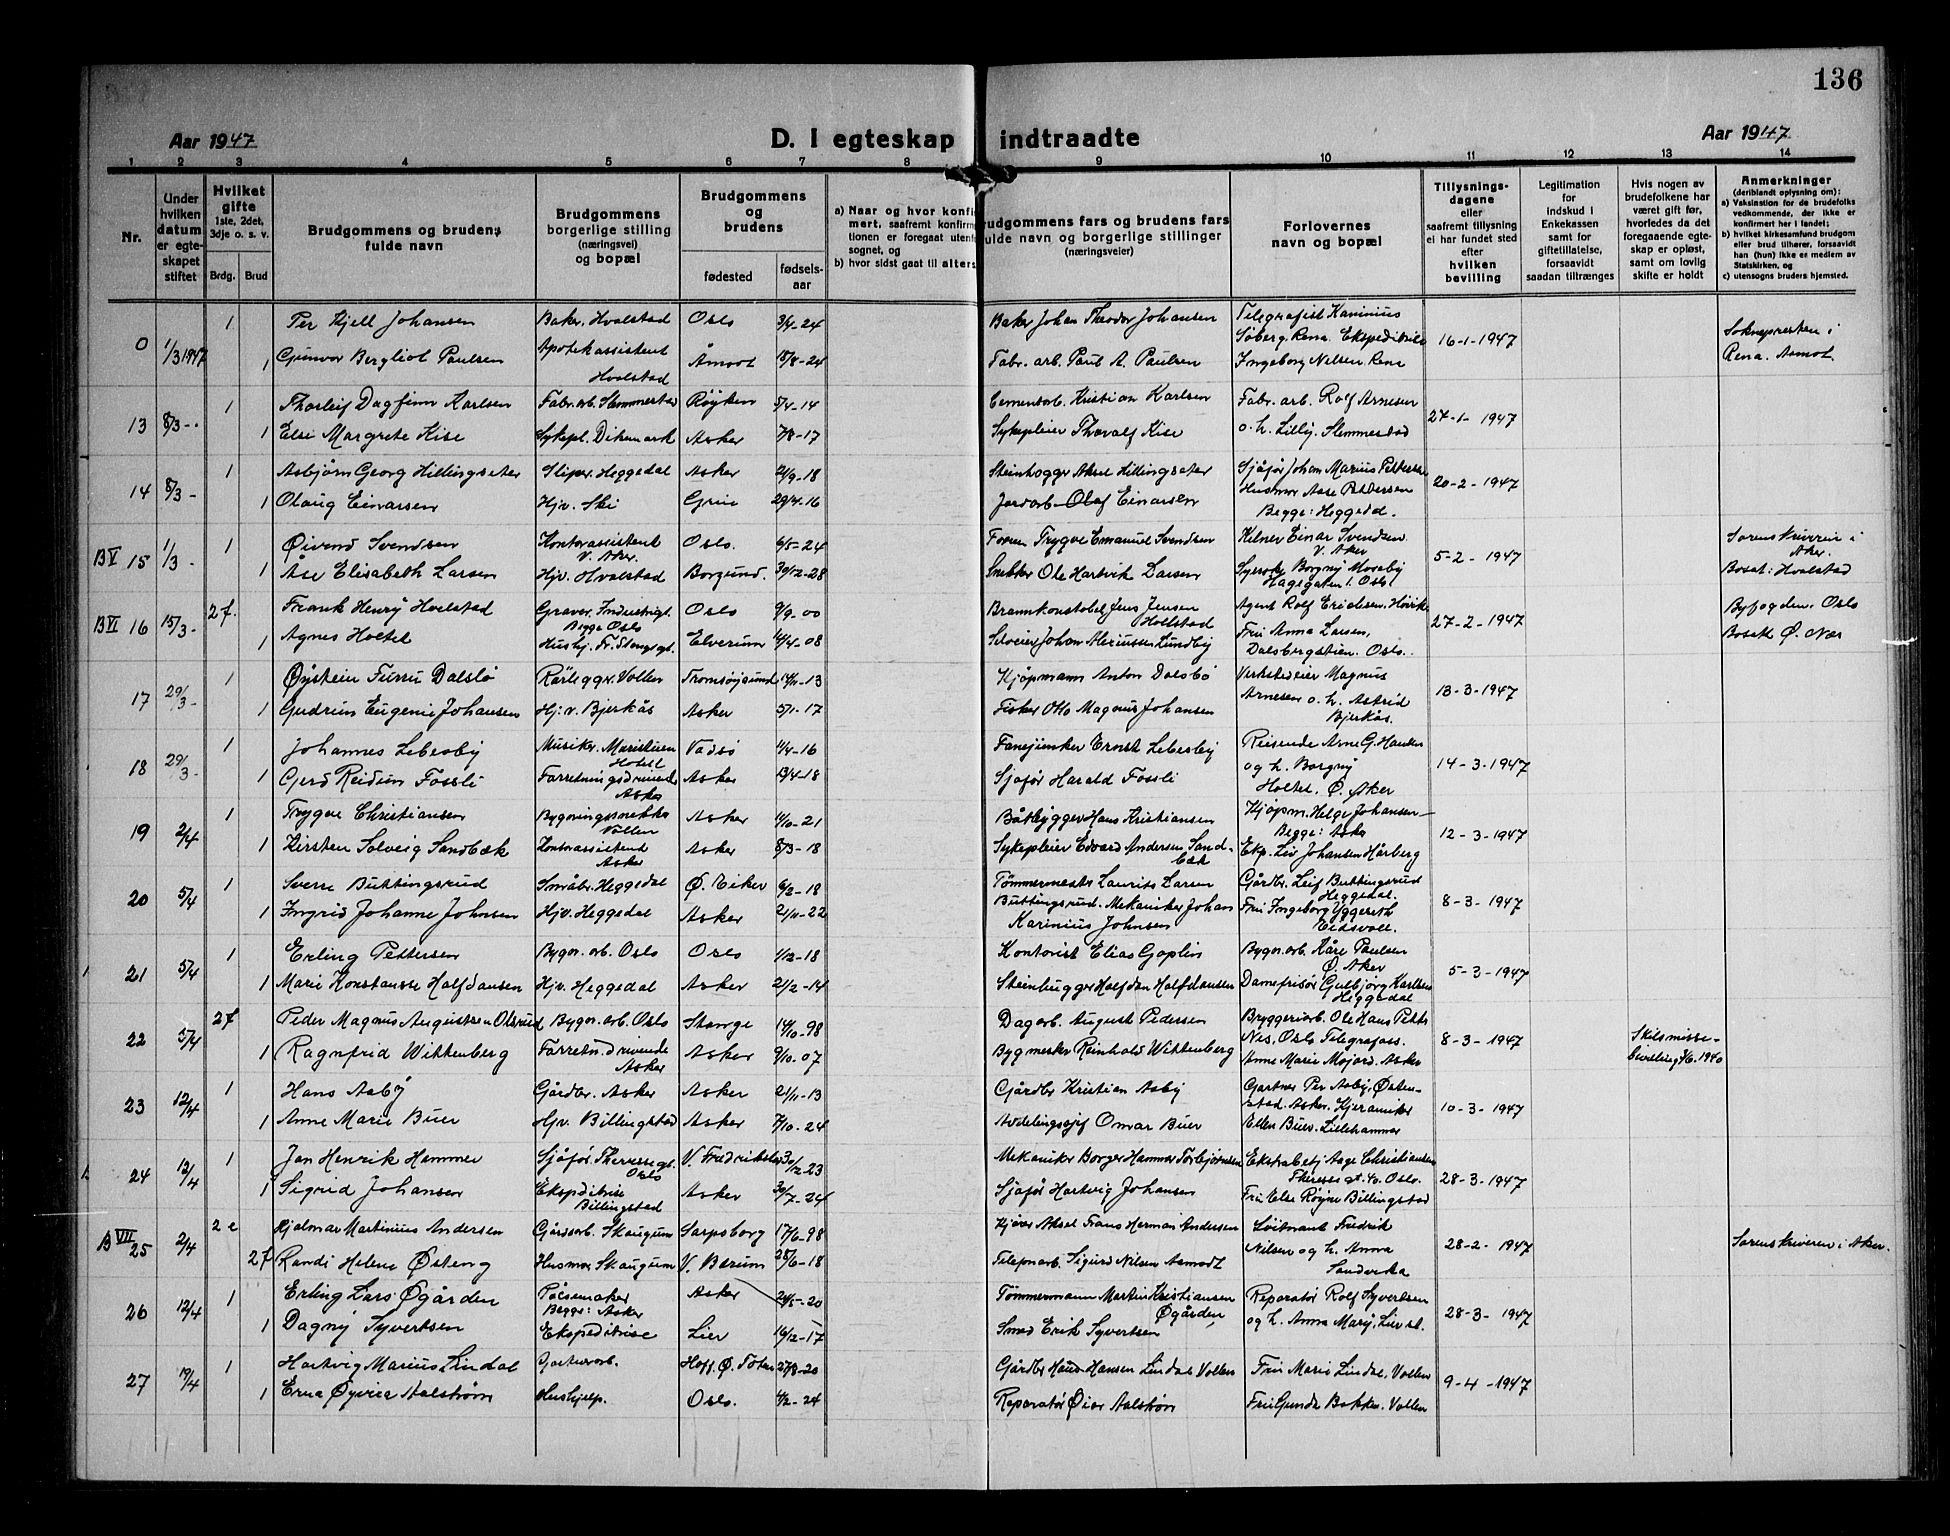 136
Aar 1947
D. I egteskap indtraadte
Aar 1947
1 2 3 4 5 6 7 8 9 10 11 12 13 14
Nr.
Under hvilken datum er egteskapet stiftet
Hvilket gifte
1ste, 2det, 3dje o. s. v.
Brdg. Brud
Brudgommens og brudens fulde navn
Brudgommens borgerlige stilling (næringsvei) og bopæl
Brudgommens og brudens
fødested
fødsels-aar
a) Naar og hvor konfi
mert, saafremt konfirma
tionen er foregaat utenfo
sognet, og
b) hvor sidst gaat til alters
udgommens fars og brudens fars
fulde navn og borgerlige stillinger
(næringsveier)
Forlovernes navn og bopæl
Tillysnings-dagene
eller
saafremt tillysning
ei har fundet sted
efter
hvilken
bevilling
Legitimation
for
Indskud i
Enkekassen
samt for
giftetillatelse,
forsaavidt
saadan tiltrænges
Hvis nogen av
brudefolkene har
været gift før,
hvorledes da det
foregaaende egte-
skap er opløst,
samt om lovlig
skifte er holdt
Anmerkninger
(deriblandt oplysning om):
a) Vaksination for de brudefolks
vedkommende, der ikke er
konfirmert her i landet;
b) hvilket kirkesamfund brudgom
eller brud tilhører, forsaavidt
han (hun) ikke er medlem av
Statskirken, og
c) utensogns bruders hjemsted.
0 1/3 1947 1 Per Kjell Johansen Baker. Hvalstad Oslo 3/4-24 Baker Johan Theodor Johansen Telegrafist Kaminius
Søberg Rena. Ekspeditrise 16-1-1947 Sokneprestens i
1 Gunvor Bergliot Paulsen Apotekassistent Hvalstad Åmot 18/8-24 Fabr. arb. Paul A. Paulsen Ingeborg Nilsen Rena Rena. Aamot.
13 8/3- 1 Thorleif Dagfinn Karlsen Fabr. arb. Slemmestad Røyken 5/4-14 Cementarb. Kristian Karlsen Fabr. arb. Rolf Arnesen 27-1-1947
1 Else Margrete Kise Sykepl. Dikemark Asker 7/8-17 Sykepleier Thoralf Kise o. h. Lilly. Slemmestad
14 8/3- 1 Asbjørn Georg Hillingseter Sliper. Heggedal Asker 21/9-18 Steinhogger Aksel Hillingseter Sjåfør Johan Marius Pettersen 20-2-1947
1 Olaug Einarsen Hjv. Ski Grue 29/4-16 Jordarb. Olaf Einarsen Husmor Aase Pettersen
Begge: Heggedal.
B V 15 1/3- 1 Øivind Svendsen Kontorassistent V. Aker. Oslo. 6/5-24 Trygve Emanuel Svendsen Kelner Einar Svendsen V. Aker 5-2-1947 Sorenskriveren i Aker.
1 Åse Elisabeth Larsen Hjv. Hvalstad Borgund. 30/12-28 Snekker Ole Hartvik Larsen Syerske Borgny Moseby Hagegaten 1. Oslo Bosatt: Hvalstad
B VI 16 15/3- 2 f. Frank Henry Hvelstad Graver. Industrigt. Begge Oslo Oslo 9/9-00 Brannkonstabel Jens Jensen Holstad Agent Rolf Eriksen. Høvik 27-2-1947 Byfogden. Oslo
1 Agnes Holtet Hushj. Fr. Stangsgt. Elverum 10/4-08 Johan Mariussen Lundby Fru Anna Larsen, Dalsbergstien. Oslo. Bosatt Ø. Nes
17 29/3- 1 Øystein Furru Dalslø Rørleggr. Vollen Tromsøysund 14/11-13 Kjøpmann Anton Dalsbø Verkstedeier Magnus 13-3-1947
1 Gudrun Eugenie Johansen Hj. v. Bjerkås Asker 5/1-17 Fisker Otto Magnus Johansen Arnesen o. h. Astrid Bjerkås.
18 29/3- 1 Johannes Lebesby Musiker. Maristuen Hotell Vadsø 11/4-16 Fanejunker Ernst Lebesby Reisende Arne G. Hansen 14-3-1947
1 Gerd Reidun Fossli Forretningsdrivende Asker Asker 13/4-18 Sjåfør Harald Fossli og h. Borgny Holtet. Ø. Aker
19 2/4 1 Trygve Christiansen Bygningssnekker Vollen Asker 11/10-21 Båtbygger Hans Kristiansen Kjøpm. Helge Johansen 12-3-1947
Begge: Asker
1 Kirsten Solveig Sandbæk Kontorassistent Asker Asker 8/3-18 Sykepleier Edvard Andersen Sandbæk Eksp. Liv Johansen Hårberg
20 5/4 1 Sverre Buttingsrud Småbr. Heggedal Ø. Eiker 6/2-18 Tømmermester Laurits Larsen Gårdbr. Leif Buttingsrud Heggedal. 8-3-1947
1 Ingrid Johanne Johnsen Hjv. Heggedal Asker 21/11-22 Buttingsrud. Mekaniker Johan Karinius Johnsen Fru Ingeborg Yggeseth Eidsvoll.
21 5/4 1 Erling Pettersen Bygn. arb. Oslo Oslo 1/12-18 Kontorist Elias Goplin Bygn. arb. Kåre Paulsen Ø. Aker 5-3-1947
1 Marie Konstansse Halfdansen Hjv. Heggedal Asker 21/2-14 Steinhugger Halfdan Halfdansen Damefrisør Gulbjørg Karlsen Heggedal
22 5/4 2 f Peder Magnus Augustsen Olsrud Bygn. arb. Oslo Stange 14/10-98 Dagarb. August Pedersen Bryggeriarb. Ole Hans Petter 8-3-1947 Skilsmisse-
1 Ragnfrid Wittenberg Forretn. drivende Asker Asker 9/10-07 Bygmester Reinhold Wittenberg Nes, Oslo Telegrafass. Anne Marie Mojord. Asker bevilling 7/6.1940
23 12/4 1 Hans Aaby Gårdbr. Asker Asker 21/11-13 Gårdbr Kristian Aaby Gartner Per Aaby, Østen- 10-3-1947
1 Anne Marie Buer Hjv. Billingstad Asker 7/10-24 Avdelingssjef Omar Buer stad. Asker. Kjeramiker Ellen Buer. Lillehammer
24 12/4 1 Jan Henrik Hammer Sjåfør. Theresesgt. Oslo V. Fredrikstad 30/12 23 Mekaniker Borger Hammer Torbjørnsen Ekstrabetj Aage Christiansen 28-3-1947
Theresesgt. 40. Oslo.
1 Sigrid Johansen Ekspeditrise Billingstad Asker 30/7-24 Sjåfør Hartvig Johansen Fru Else Røyne Billingstad
B VII 25 2/4 2 e Hjalmar Martinius Andersen Gårdsarb. Skaugum Sarpsborg 17/6-98 Kjører Aksel Frans Herman Andersen Løitnant Fredrik 28-2-1947 Sorenskriveren i Aker.
2 f Randi Helene Østeng Husmor Skaugum V. Bærum 28/6-18 Telefonarb. Sigurd Nilsen Aamodt Nilsen og h. Anna Sandvika
26 12/4 1 Erling Lars Øgården Pølsemaker Begge: Asker Asker 24/5-20 Tømmermann Martin Kristiansen Øgården Reparatør Rolf Syvertsen 28-3-1947
1 Dagny Syvertsen Ekspeditrise Lier 16/12-17 Smed Erik Syvertsen og h. Anna Mary, Lier st.
27 19/4 1 Hartvig Marius Lindal Gartnerarb. Hoff. Ø. Toten 27/8-20 Gårdbr Hans Hansen Lindal Vollen Fru Marie Lindal, Vollen 9-4-1947
1 Erna Øyvica Aalstrøm Hushjelp. Oslo. 4/2-24 Reparatør Øivar Aalstrøm Fru Gunda Bakken. Vollen